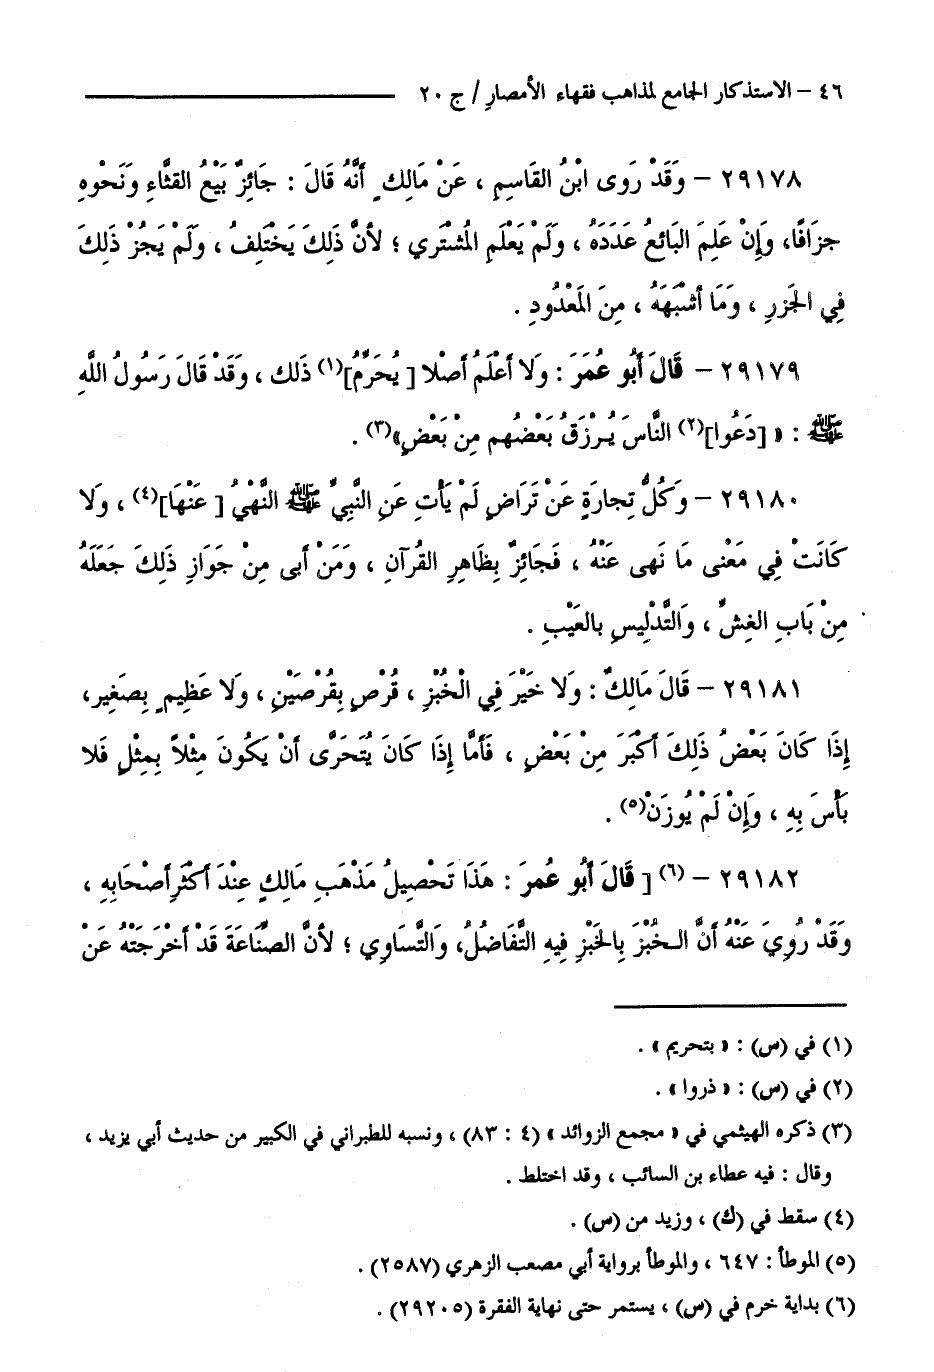 ٤٦ – الاستذكار الجامع لمذاهب فقهاء الأمصارِ / ج ٢٠
٢٩١٧٨ – وَقَدْ رَوى ابْنُ القَاسِمِ ، عَنْ مَالِكٍ أَنَّهُ قَالَ : جَائِزٌ بَيْعُ القثَّاءِ وَنَحْوِهِ
جزَافًا، وَإِنْ عَلِمَ البَائعُ عَدَدَهُ ، وَلَمْ يَعْلَمِ المُشْتَرِي ؛ لأنَّ ذَلِكَ يَخْتَلِفُ ، وَلَمْ يَجُزْ ذَلِكَ
فِي الجَزرِ ، وَمَا أشْبَهَهُ ، مِنَ المَعْدُودِ .
٢٩١٧٩ – قَالَ أَبُو عُمَرَ : وَلا أعْلَمُ أصْلا [ يُحَرِّمُ](١) ذَلك ، وَقَدْ قَالَ رَسُولُ اللَّهِ
ﷺ : « [دَعُوا](٢) النَّاسَ يُرْزَقُ بَعْضُهم مِنْ بَعْضٍ»(٣) .
٢٩١٨٠ – وَكُلُّ تِجارَةٍ عَنْ تَرَاضٍ لَمْ يَأْتِ عَنِ النَّبِيِّ ﷺ النَّهْيُ [ عَنْهَا](٤) ، وَلَا
كَانَتْ فِي مَعْنى مَا نَهى عَنْهُ ، فَجَائِزٌ بِظَاهِرِ القُرآنِ ، وَمَنْ أبى مِنْ جَوَازِ ذَلِكَ جَعَلَهُ
مِنْ بَابِ الغِشِّ ، وَالتَّدْلِيسِ بالعَيْبِ .
٢٩١٨١ – قَالَ مَالِكٌ : وَلا خَيْرَ فِي الْخُبْزِ ، قُرْصٍ بِقُرْصَيْنِ ، وَلا عَظِيمٍ بِصَغِيرٍ،
إِذَا كَانَ بَعْضُ ذَلِكَ أَكْبَرَ مِنْ بَعْضٍ ، فَأَمَّا إِذَا كَانَ يُتَحَرَّى أنْ يَكُونَ مِثْلاً بِمِثْلٍ فَلا
بَأْسَ بِهِ ، وَإِنْ لَمْ يُوزَنْ(٥) .
٢٩١٨٢ – (٦) [ قَالَ أَبُو عُمرَ : هَذَا تَحْصِيلُ مَذْهَبِ مَالِكٍ عِنْدَ أكْثَرِ أصْحَابِهِ ،
وَقَدْ رُوِيَ عَنْهُ أنَّ الخُبْزَ بِالخَبْزِ فِيهِ التَّفَاضُلُ، وَالتَّسَاوِي ؛ لأنَّ الصِّنَاعَةَ قَدْ أخْرَجَتْهُ عَنْ
(١) في (س) : « بتحريم » .
(٢) في (س) : « ذروا » .
(٣) ذكره الهيثمي في « مجمع الزوائد » (٤ : ٨٣) ، ونسبه للطبراني في الكبير من حديث أبي يزيد ،
وقال : فيه عطاء بن السائب ، وقد اختلط .
(٤) سقط في (ك) ، وزيد من (س) .
(٥) الموطأ : ٦٤٧ ، والموطأ برواية أبي مصعب الزهري (٢٥٨٧) .
(٦) بداية خرم في (س) ، يستمر حتى نهاية الفقرة (٢٩٢٠٥) .